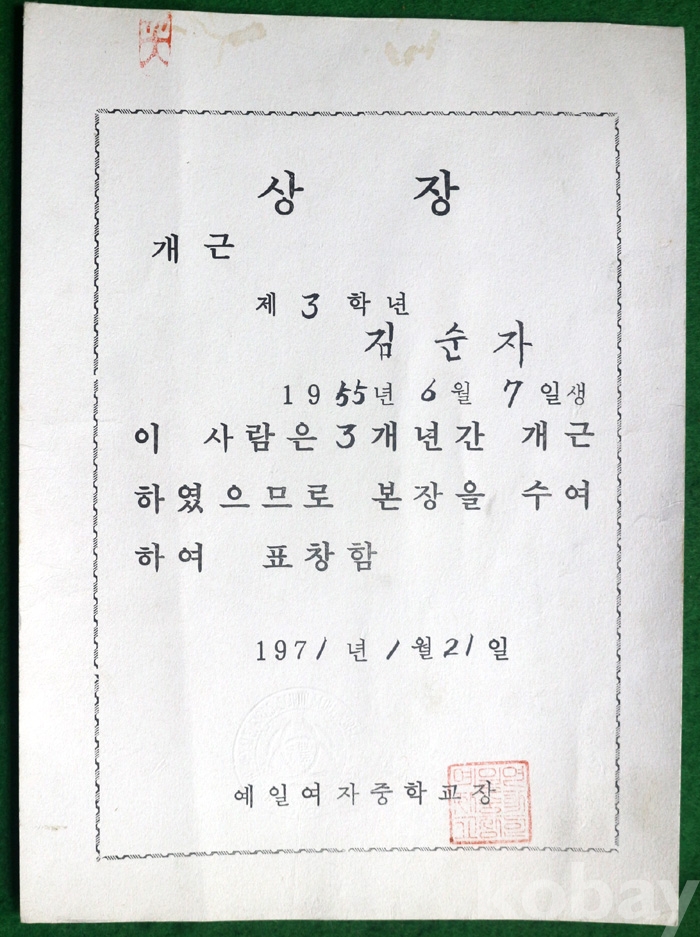 상 장
개 근
제 3 학 년
김 순 자
1955년 6월 7일생
이 사람은 3개년간 개근
하였으므로 본장을 수여
하여 표창함
1971년 1월 21일
예일여자중학교장
kobay